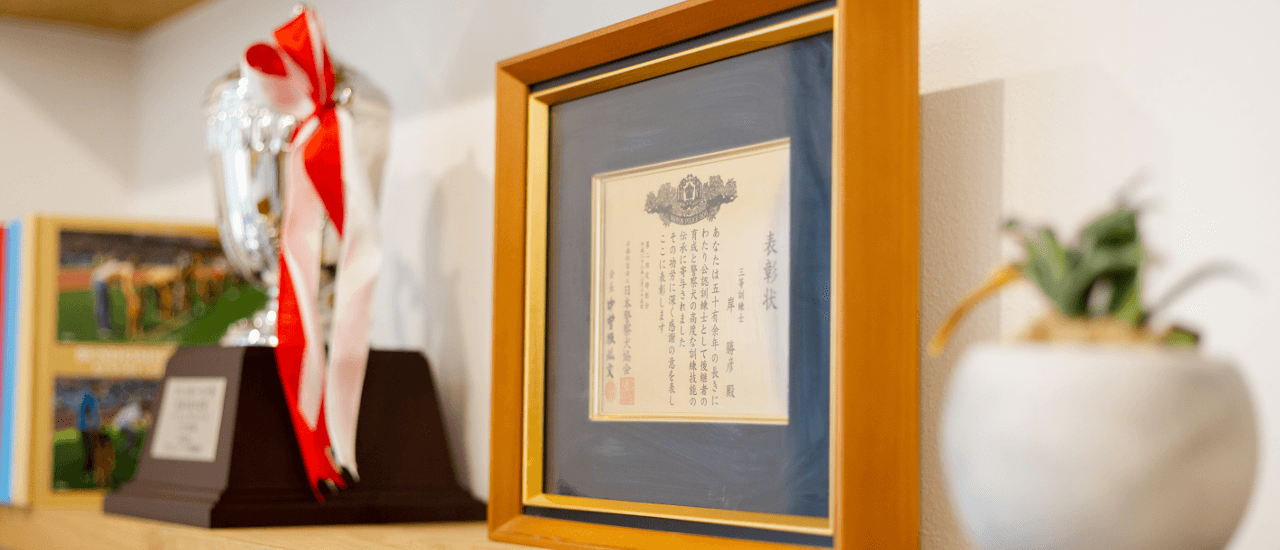 表彰状
三等訓練士
岸 勝彦 殿
あなたは五十有余年の長きに
わたり公認訓練士として後継者の
育成と警察犬の高度な訓練技能の
伝承に寄与されました
その功労に深く感謝の意を表し
ここに表彰します
日本警察犬協会
会長